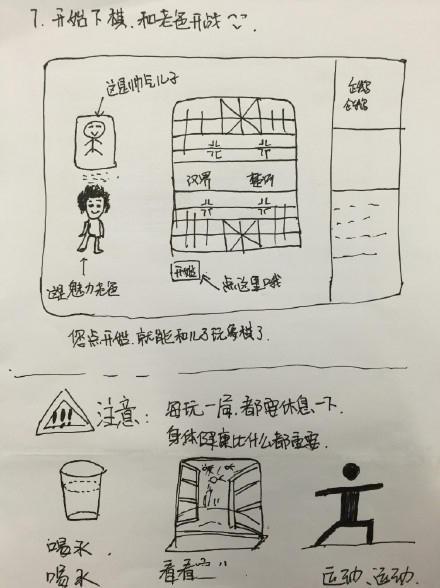 7. 开始下棋.和老爸开战
这是帅气儿子
企鹅
企鹅
汉界 楚河
开始 点这里哦
这是魅力老爸
您点开始.就能和儿子玩象棋了.
!!! 注意: 每玩一局.都要休息一下.
身体健康比什么都重要.
喝水.
喝水 看看 运动、运动.